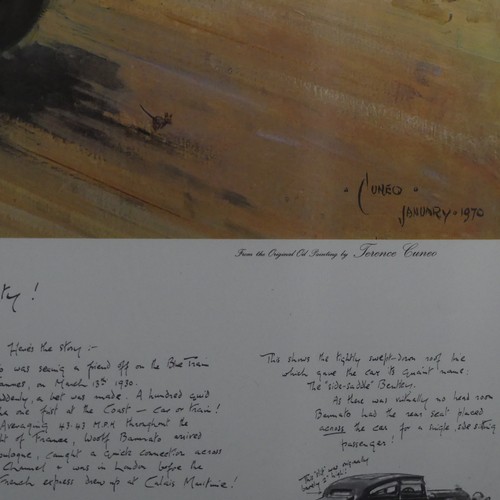 • CUNEO •
JANUARY • 1970
From the Original Oil Painting by Terence Cuneo
!
Here's the story :-
was seeing a friend off on the Blue Train
on March 13th 1930.
a bet was made. A hundred quid
one first at the Coast — car or train!
Averaging 43·43 M.P.H throughout the
of France, Woolf Barnato arived
caught a quick connection across
Channel & was in London before the
French express drew up at Calais Maritime!
This shows the tightly swept-down roof line
which gave the car its quaint name:
The "side-saddle" Bentley.
As there was virtually no head room
Barnato had the rear seat placed
across the car for a single, side sitting
passenger!
was originally